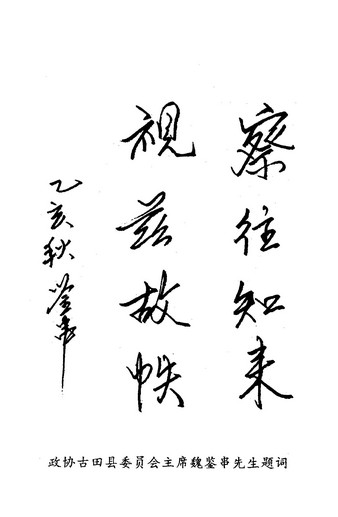 察往知来
视兹故帙
乙亥秋 鉴串
政协古田县委员会主席魏鉴串先生题词